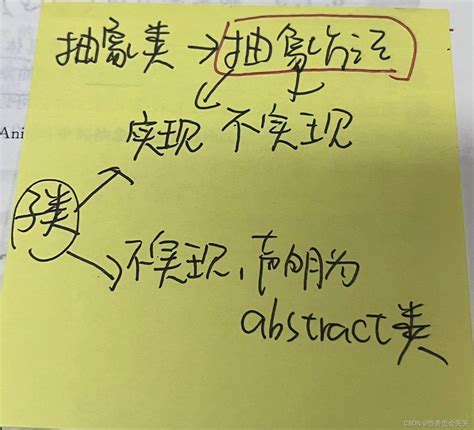 抽象类→抽象方法
实现 不实现
Ani
子类
不实现,声明为
abstract类